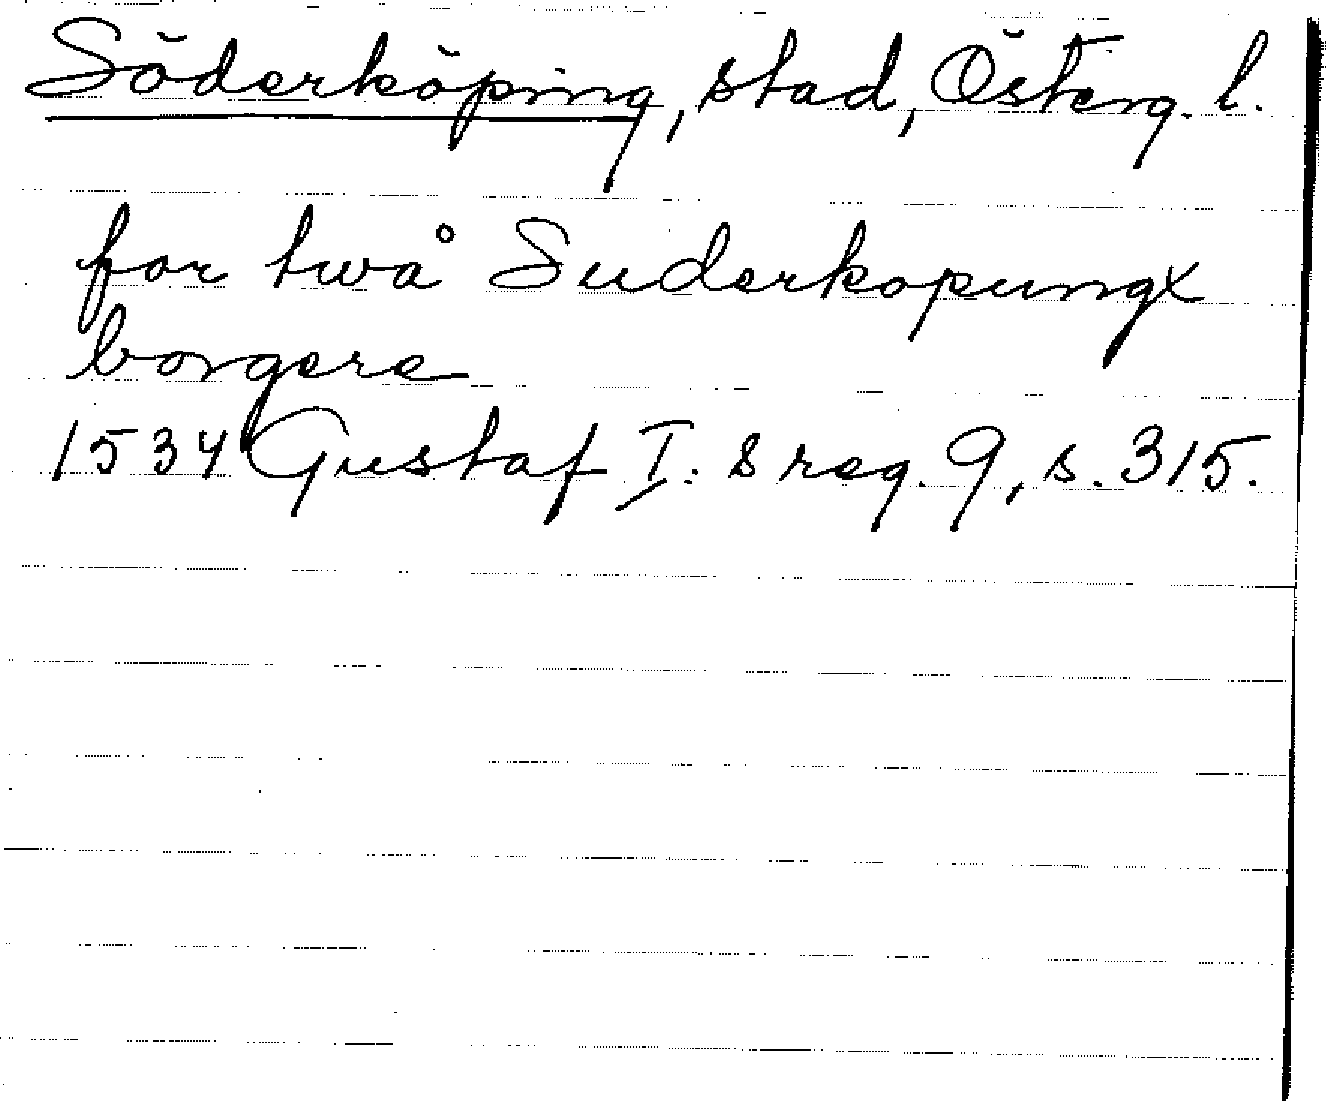 Söderköping, stad, Österg. l.
for twå Suderkopungx
borgere
1534 Gustaf I:s reg. 9, s. 315.